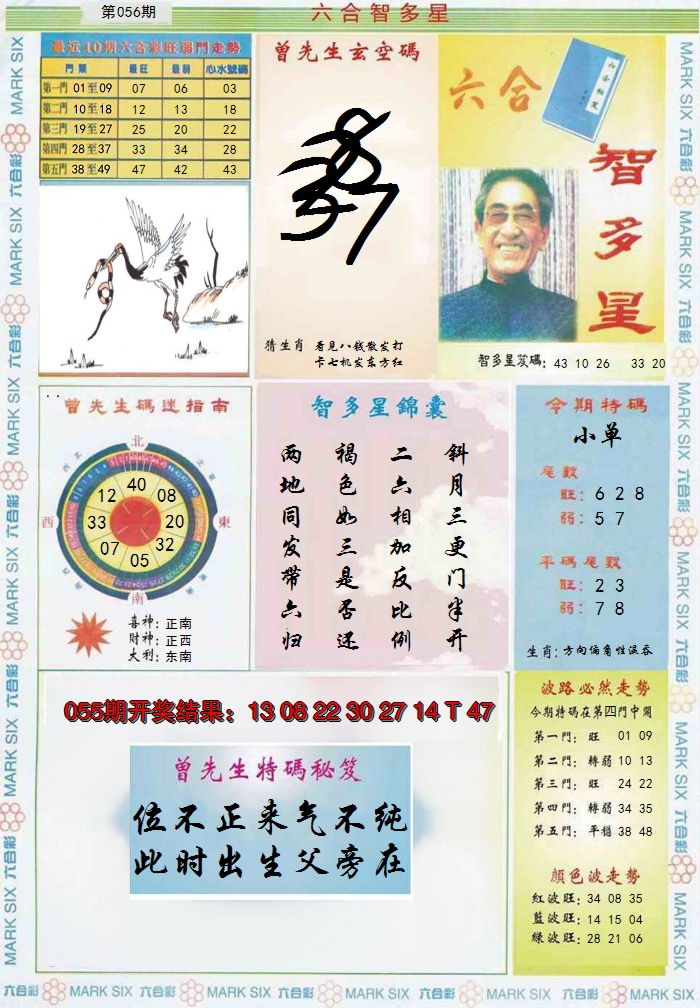 第056期
六合智多星
最近10期六合彩旺弱門走勢
門類 最旺 最弱 心水號碼
第一門 01至09 07 06 03
第二門 10至18 12 13 18
第三門 19至27 25 20 22
第四門 28至37 33 34 28
第五門 38至49 47 42 43
曾先生玄空碼
猜生肖 看見八钱散发打
卡七机发东方红
六合
智多星
智多星笈碼: 43 10 26 33 20
曾先生碼迷指南
北
西
東
南
40
12
08
33
20
07
32
05
喜神: 正南
財神: 正西
大利: 东南
智多星錦囊
斜月三更门半开
二六相加反比例
褐色如三是否还
两地同发带六归
今期特碼
小单
尾數
旺: 6 2 8
弱: 5 7
平碼尾數
旺: 2 3
弱: 7 8
生肖: 方向偏角性温吞
055期开奖结果: 13 08 22 30 27 14 T 47
曾先生特碼秘笈
位不正来气不纯
此时出生父旁在
波路必然走勢
今期特碼在第四門中開
第一門: 旺 01 09
第二門: 轉弱 10 13
第三門: 旺 24 22
第四門: 轉弱 34 35
第五門: 平穩 38 48
顏色波走勢
紅波旺: 34 08 35
藍波旺: 14 15 04
綠波旺: 28 21 06
MARK SIX 六合彩